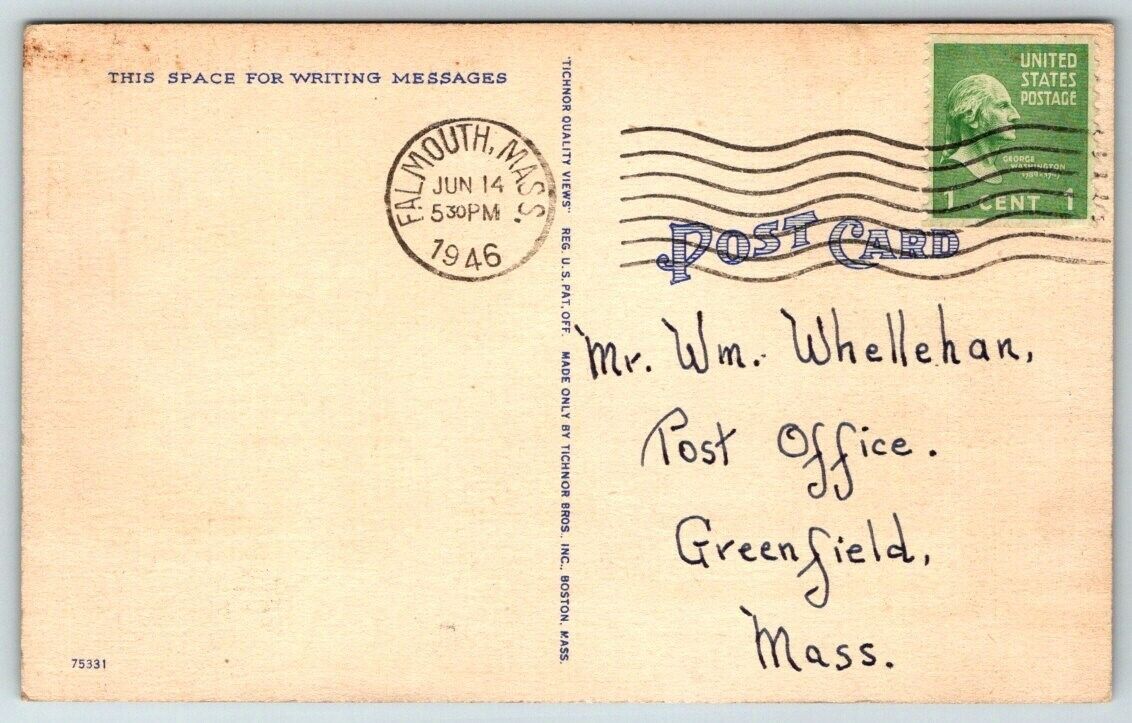 THIS SPACE FOR WRITING MESSAGES
FALMOUTH, MASS.
JUN 14
5 30 PM
1946
"TICHNOR QUALITY VIEWS" REG. U.S. PAT. OFF. MADE ONLY BY TICHNOR BROS., INC., BOSTON, MASS.
UNITED
STATES
POSTAGE
GEORGE
WASHINGTON
1 CENT 1
POST CARD
Mr. Wm. Whellehan,
Post Office.
Greenfield,
Mass.
75331